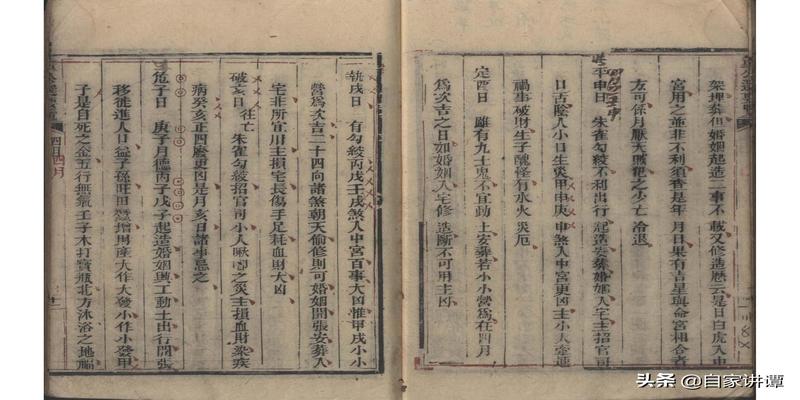 架埋葬但婚姻起造二事不載又修造歷云是日白虎入中
宮用之並非不利須查是年月日果有吉星與命宮相合者
方可係月厭天賊犯之少亡冷退
平申日 朱雀勾絞不利出行起造安葬婚姻入宅主招官司
日古陰人小口生災甲申庚申煞入中宮更凶主小人牽連
禍事破財生子醜怪有水火災厄
定酉日 雖有九土鬼不宜動土安葬若小小營為在四月
為次吉之日如婚姻入宅修造斷不可用主凶
執戌日 有勾絞丙戌壬戌煞入中宮百事大凶惟甲戌小小
營為次吉二十四向諸煞朝天偷修則可婚姻開張安葬入
宅非所宜用主損宅長傷手足耗血財大凶
破亥日 往亡朱雀勾絞招官司小人啾唧之災主損血財染疾
病癸亥正四廢更凶是月亥日諸事忌之
危子日 庚子月德丙子戊子起造婚姻興工動土出行開張
移徙進人口益子孫旺田蠶增財產大作大發小作小發甲
子是自死之金五行無氣壬子木打寶瓶北方沐浴之地
四月
头条 @自家讲谭